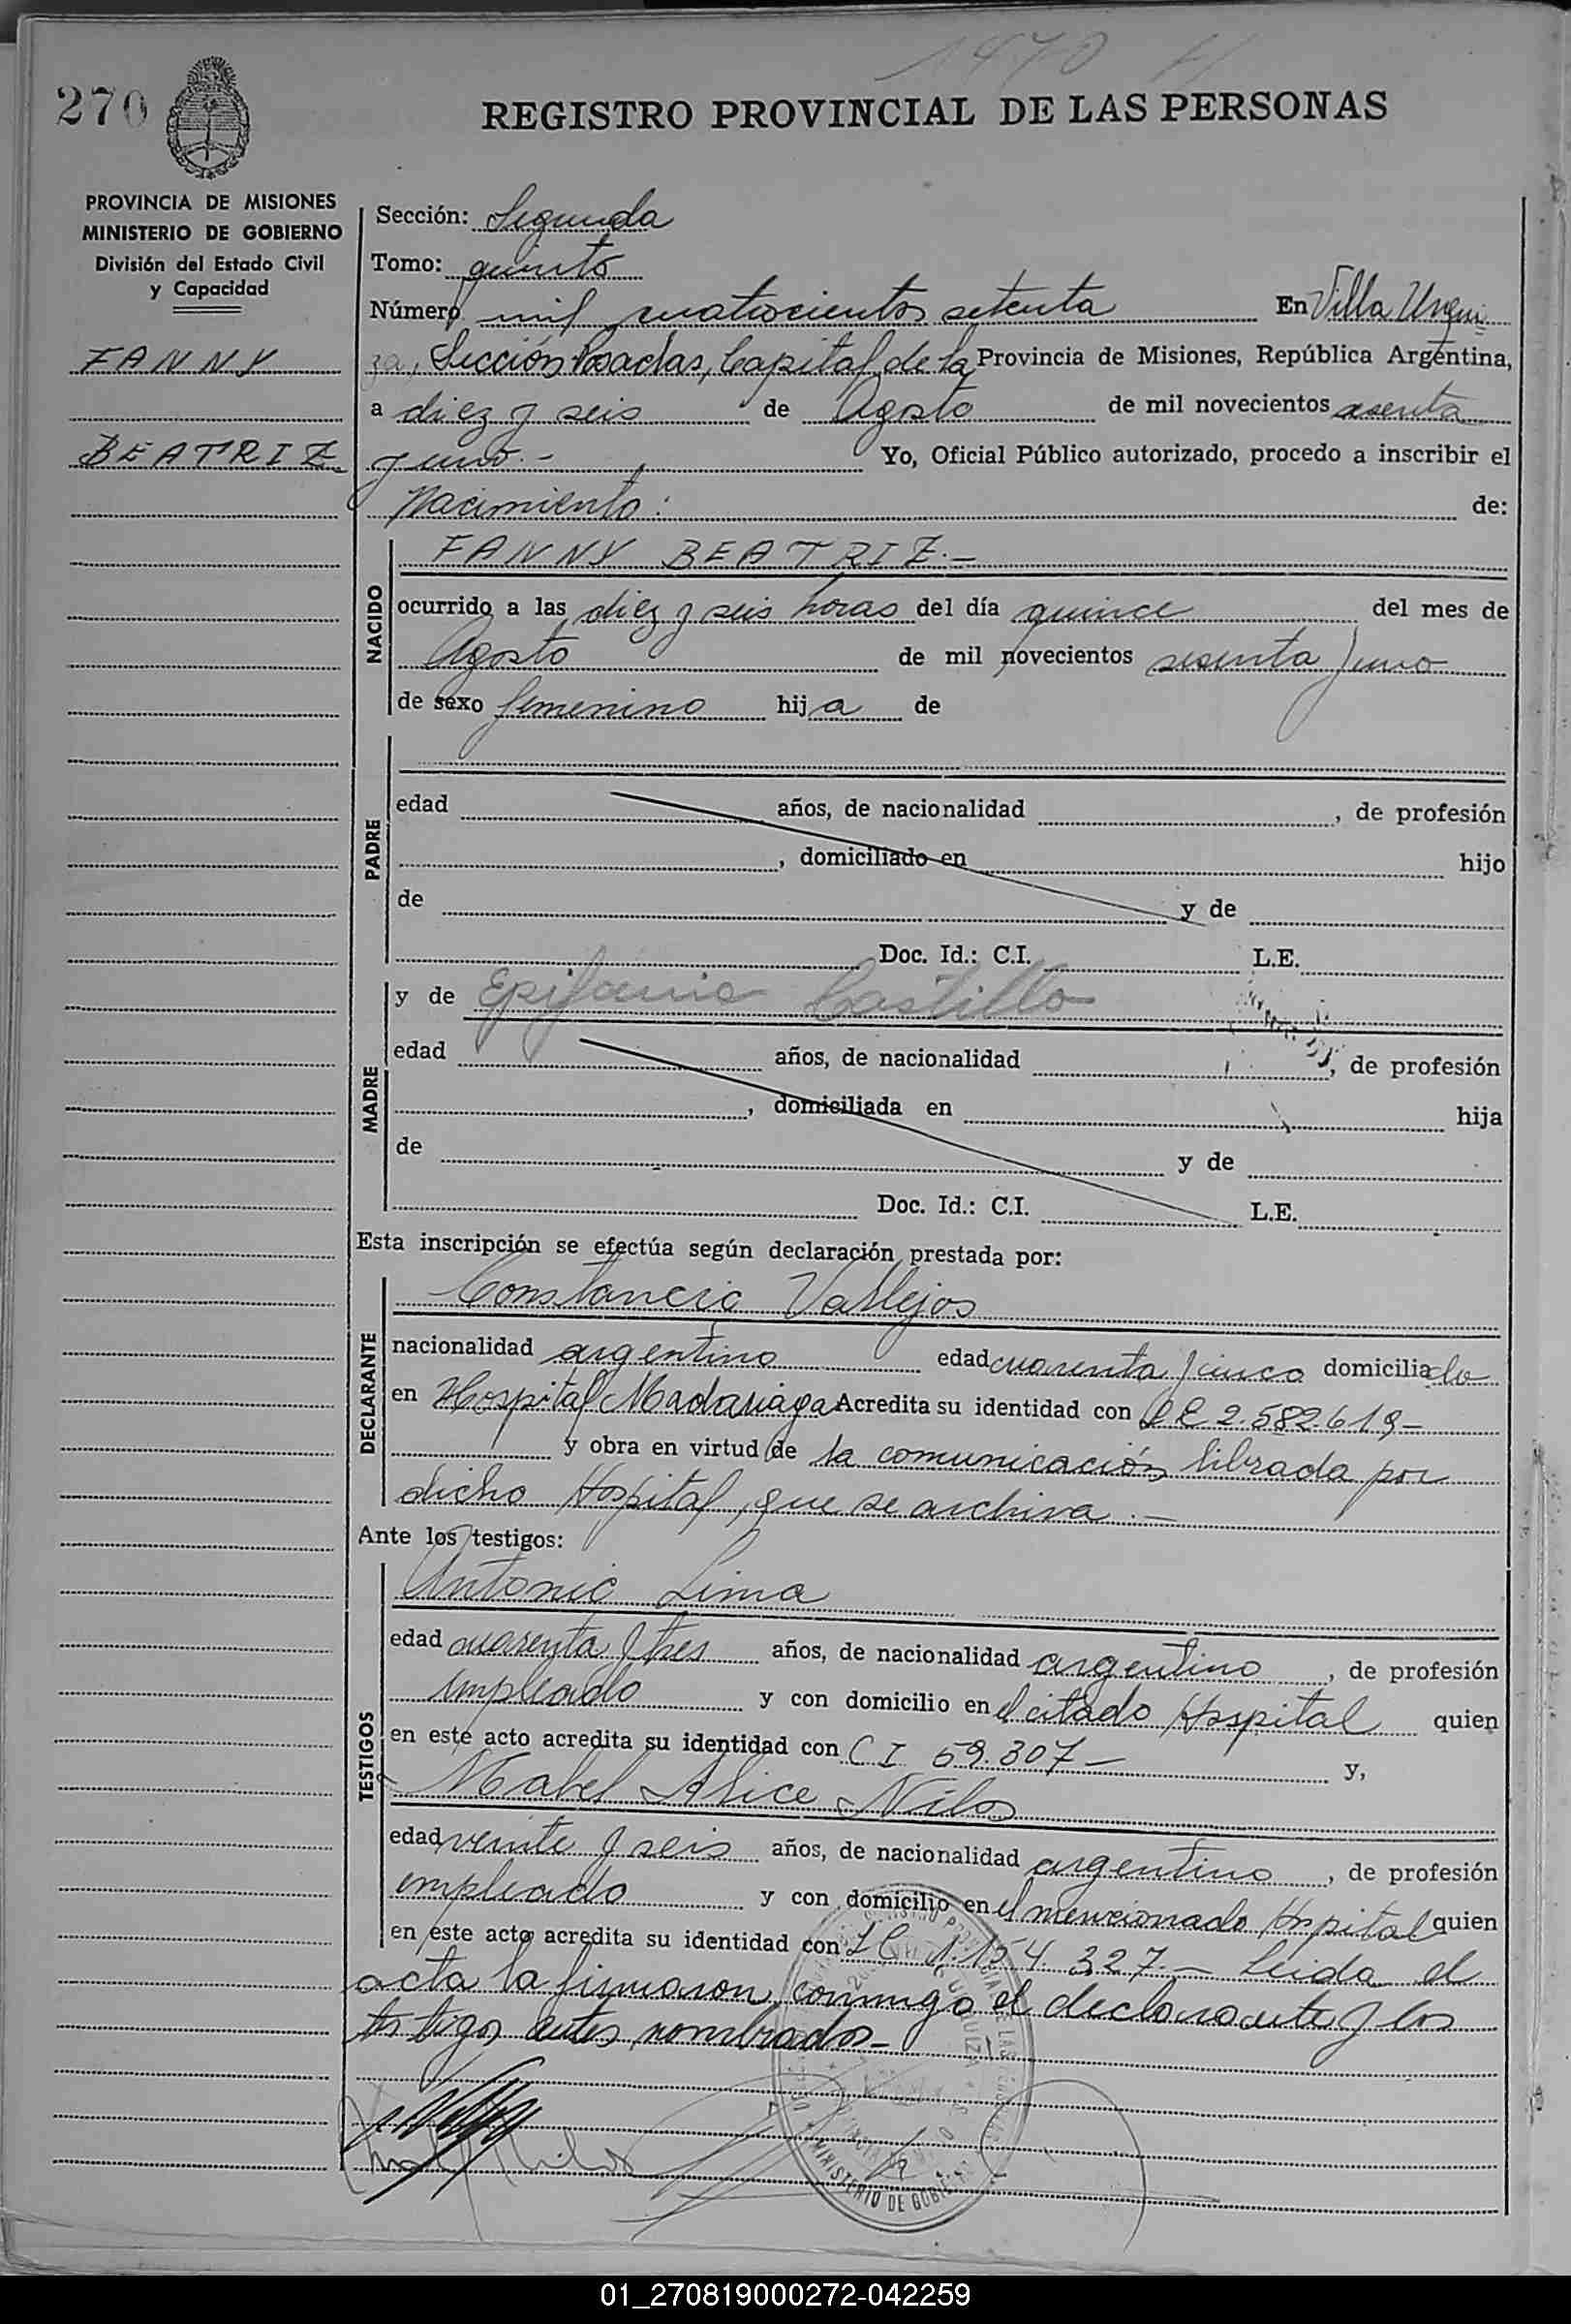 1470
270
REGISTRO PROVINCIAL DE LAS PERSONAS
PROVINCIA DE MISIONES
MINISTERIO DE GOBIERNO
División del Estado Civil
y Capacidad
FANNY
BEATRIZ
Sección: Segunda
Tomo: quinto
Número mil cuatrocientos setenta En Villa Urqui
za, Sección Posadas, Capital de la Provincia de Misiones, República Argentina,
a diez y seis de Agosto de mil novecientos sesenta
y uno.- Yo, Oficial Público autorizado, procedo a inscribir el
Nacimiento: de:
NACIDO
FANNY BEATRIZ.-
ocurrido a las diez y seis horas del día quince del mes de
Agosto de mil novecientos sesenta y uno
de sexo femenino hija de
PADRE
edad años, de nacionalidad , de profesión
, domiciliado en hijo
de y de
Doc. Id.: C.I. L.E.
MADRE
y de Epifania Castillo
edad años, de nacionalidad , de profesión
, domiciliada en hija
de y de
Doc. Id.: C.I. L.E.
Esta inscripción se efectúa según declaración prestada por:
DECLARANTE
Constancio Vallejos
nacionalidad argentino edad cuarenta y cinco domiciliado
en Hospital Madariaga Acredita su identidad con 2.582.619-
y obra en virtud de la comunicación librada por
dicho Hospital, que se archiva.-
Ante los testigos:
TESTIGOS
Antonio Lima
edad cuarenta y tres años, de nacionalidad argentino, de profesión
empleado y con domicilio en el citado Hospital quien
en este acto acredita su identidad con C I 59.307- y,
Mabel Alice Nilos
edad veinte y seis años, de nacionalidad argentino, de profesión
empleado y con domicilio en el mencionado Hospital quien
en este acto acredita su identidad con L C 1.154.327.- Leida el
acta la firmaron conmigo el declarante y los
testigos antes nombrados-
MINISTERIO DE GOBIERNO
01_270819000272-042259